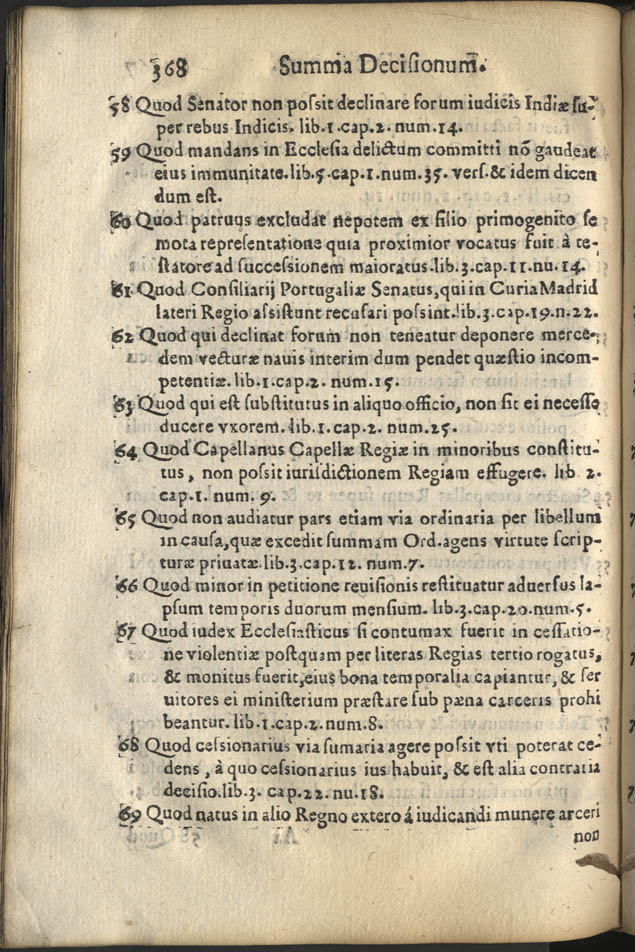 368 Summa Decisionum.
58 Quod Senator non possit declinare forum iudicis Indiæ su-
per rebus Indicis. lib.1.cap.2.num.14.
59 Quod mandans in Ecclesia delictum committi nõ gaudeat
eius immunitate.lib.5.cap.1.num.35. vers.& idem dicen
dum est.
60 Quod patruus excludat nepotem ex filio primogenito se
mota representatione quia proximior vocatus fuit à te-
statore ad successionem maioratus.lib.3.cap.11.nu.14.
61 Quod Consiliarij Portugaliæ Senatus, qui in Curia Madrid
lateri Regio assistunt recusari possint.lib.3.cap.19.n.22.
62 Quod qui declinat forum non teneatur deponere merce-
dem vecturæ nauis interim dum pendet quæstio incom-
petentiæ. lib.1.cap.2. num.15.
63 Quod qui est substitutus in aliquo officio, non sit ei necesse
ducere vxorem. lib.1.cap.2. num.25.
64 Quod Capellanus Capellæ Regiæ in minoribus constitu-
tus, non possit iurisdictionem Regiam effugere. lib 2.
cap.1. num. 9.
65 Quod non audiatur pars etiam via ordinaria per libellum
in causa, quæ excedit summam Ord.agens virtute scrip-
turæ priuatæ.lib.3.cap.12. num.7.
66 Quod minor in petitione reuisionis restituatur aduersus la-
psum temporis duorum mensium. lib.3.cap.20.num.5.
67 Quod iudex Ecclesiasticus si contumax fuerit in cessatio-
ne violentiæ postquam per literas Regias tertio rogatus,
& monitus fuerit, eius bona temporalia capiantur, & ser
uitores ei ministerium præstare sub pæna carceris prohi
beantur. lib.1.cap.2.num.8.
68 Quod cessionarius via sumaria agere possit vti poterat ce-
dens, à quo cessionarius ius habuit, & est alia contraria
decisio.lib.3. cap.22.nu.18.
69 Quod natus in alio Regno extero á iudicandi munere arceri
non